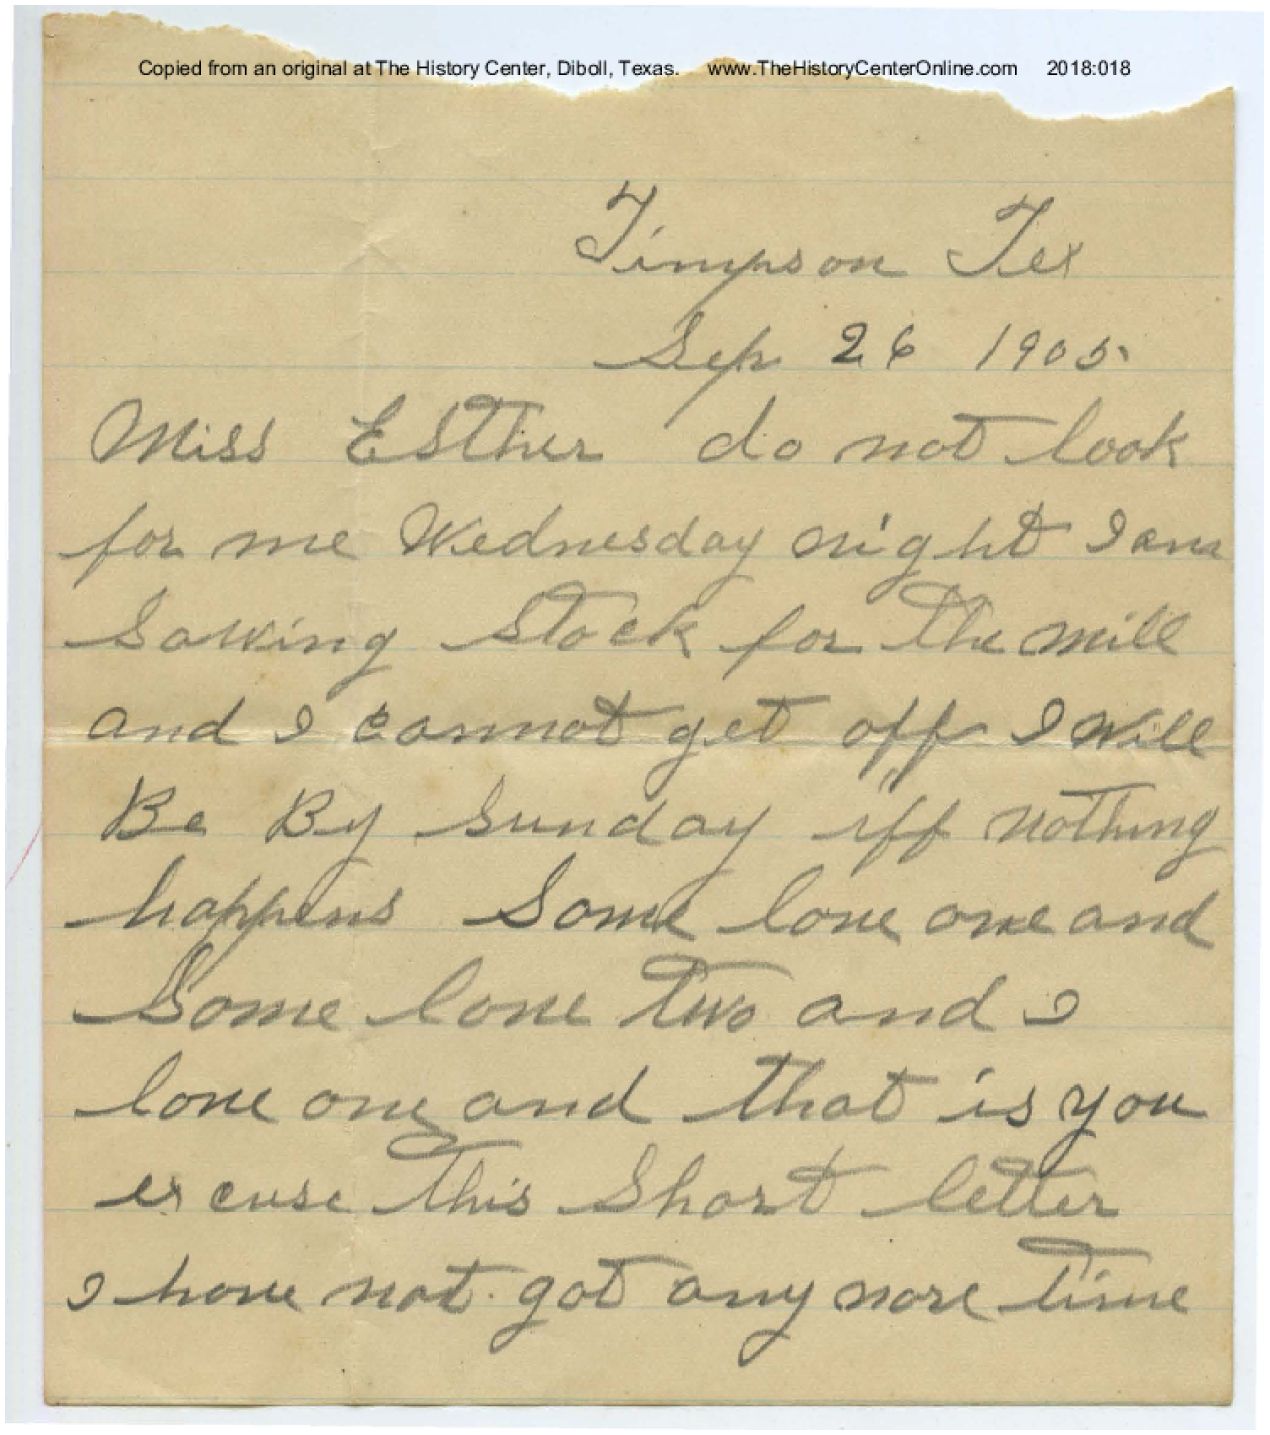 Copied from an original at The History Center, Diboll, Texas. www.TheHistoryCenterOnline.com 2018:018
Timpson Tex
Sep 26 1905
Miss Esther do not look
for me Wednesday night I am
Sawing Stock for the mill
and I cannot get off I Will
Be By Sunday iff nothing
happens Some love one and
Some love two and I
love one and that is you
excuse this Short letter
I have not got any more time